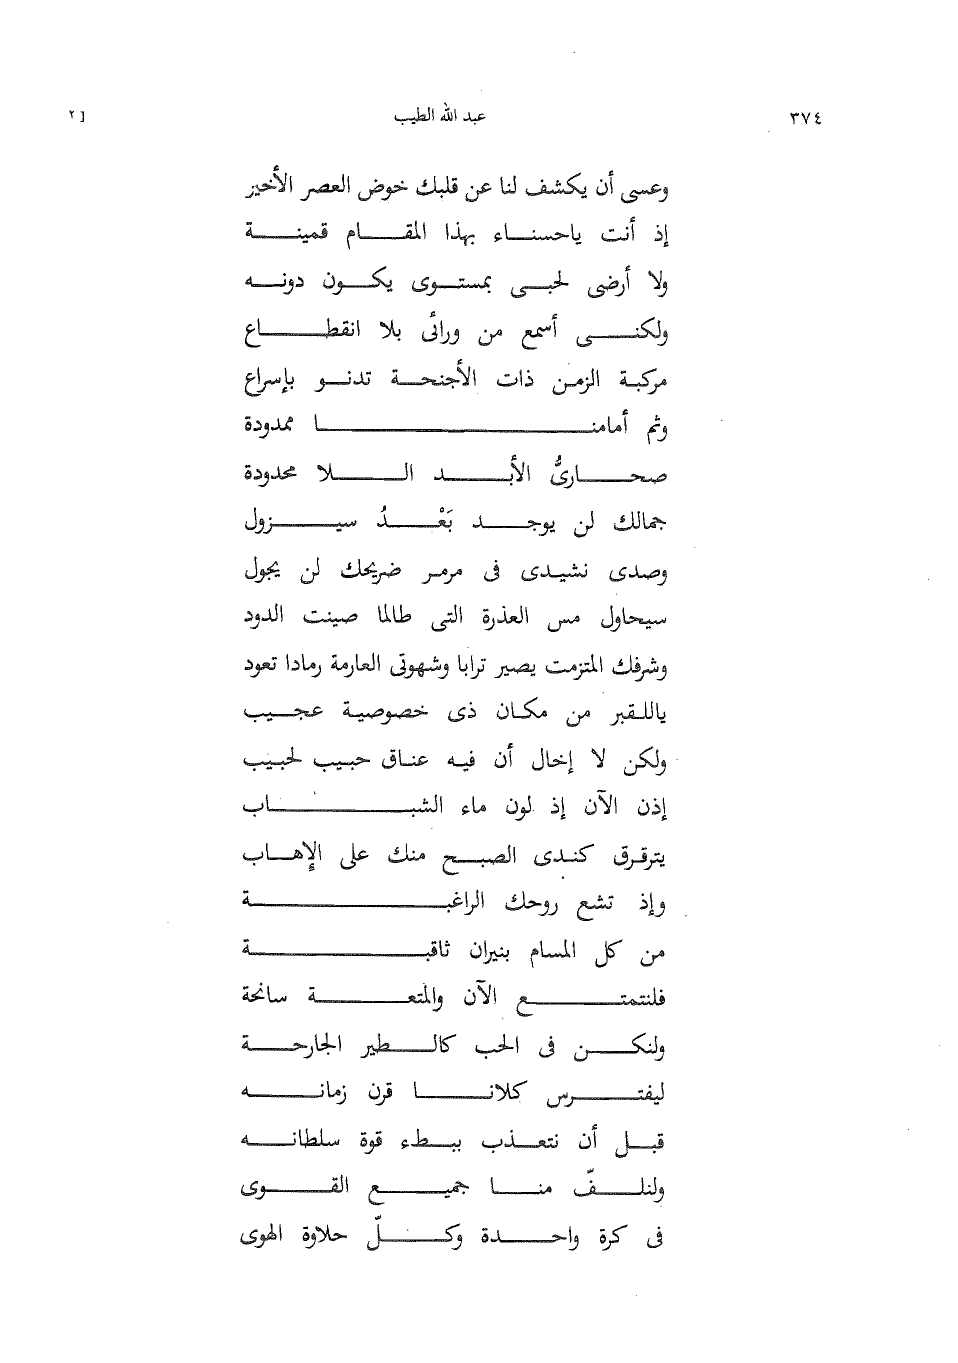 ٣٧٤ عبد الله الطيب [ ٢
وعسى أن يكشف لنا عن قلبك خوض العصر الأخير
إذ أنت ياحسناء بهذا المقام قمينة
ولا أرضى لحبى بمستوى يكون دونه
ولكنى أسمع من ورائى بلا انقطاع
مركبة الزمن ذات الأجنحة تدنو بإسراع
وثم أمامنا ممدودة
صحارىُّ الأبد اللا محدودة
جمالك لن يوجد بَعْدُ سيزول
وصدى نشيدى فى مرمر ضريحك لن يجول
سيحاول مس العذرة التى طالما صينت الدود
وشرفك المتزمت يصير ترابا وشهوتى العارمة رمادا تعود
ياللقبر من مكان ذى خصوصية عجيب
ولكن لا إخال أن فيه عناق حبيب لحبيب
إذن الآن إذ لون ماء الشباب
يترقرق كندى الصبح منك على الإهاب
وإذ تشع روحك الراغبة
من كل المسام بنيران ثاقبة
فلنتمتع الآن والمتعة سانحة
ولنكن فى الحب كالطير الجارحة
ليفترس كلانا قرن زمانه
قبل أن نتعذب ببطء قوة سلطانه
ولنلفّ منا جميع القوى
فى كرة واحدة وكلّ حلاوة الهوى